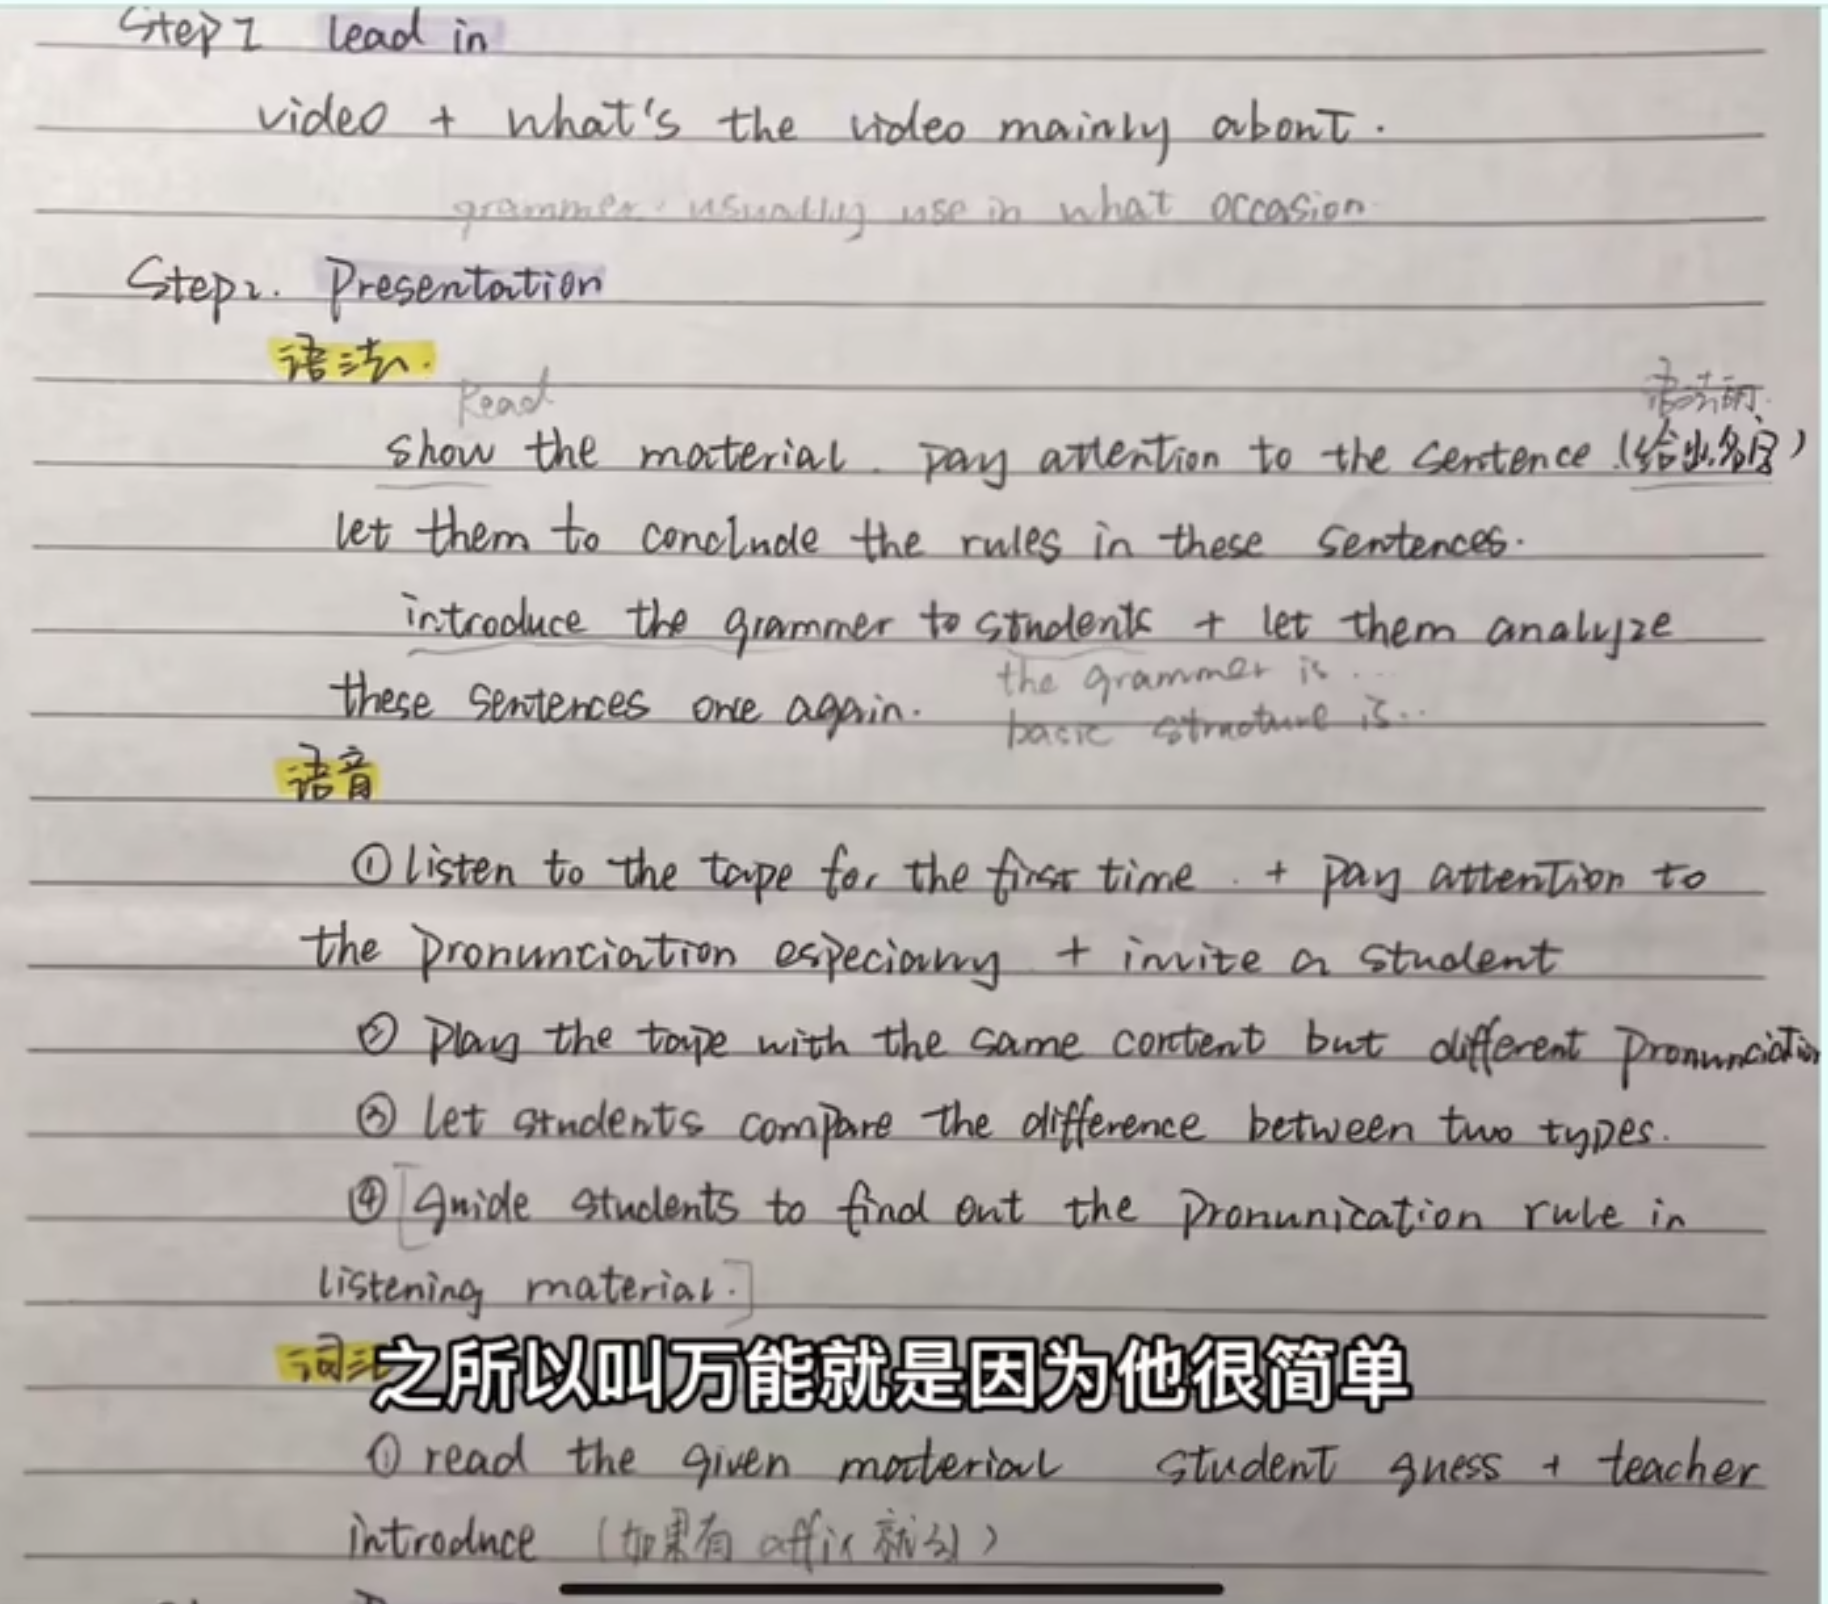 Step 1 lead in
video + what's the video mainly about.
grammer. usually use in what occasion
Step2. Presentation
语法.
Read
show the material. pay attention to the sentence.(给出名字)
let them to conclude the rules in these sentences.
introduce the grammer to students + let them analyze
the grammer is...
these sentences once again.
basic structure is...
语音
①listen to the tape for the first time. + pay attention to
the pronunciation especially + invite a student
② play the tape with the same content but different pronunciation
③ let students compare the difference between two types.
④ [guide students to find out the pronunication rule in
listening material.]
词汇
之所以叫万能就是因为他很简单
① read the given material student guess + teacher
introduce (如果有 affix 就分)